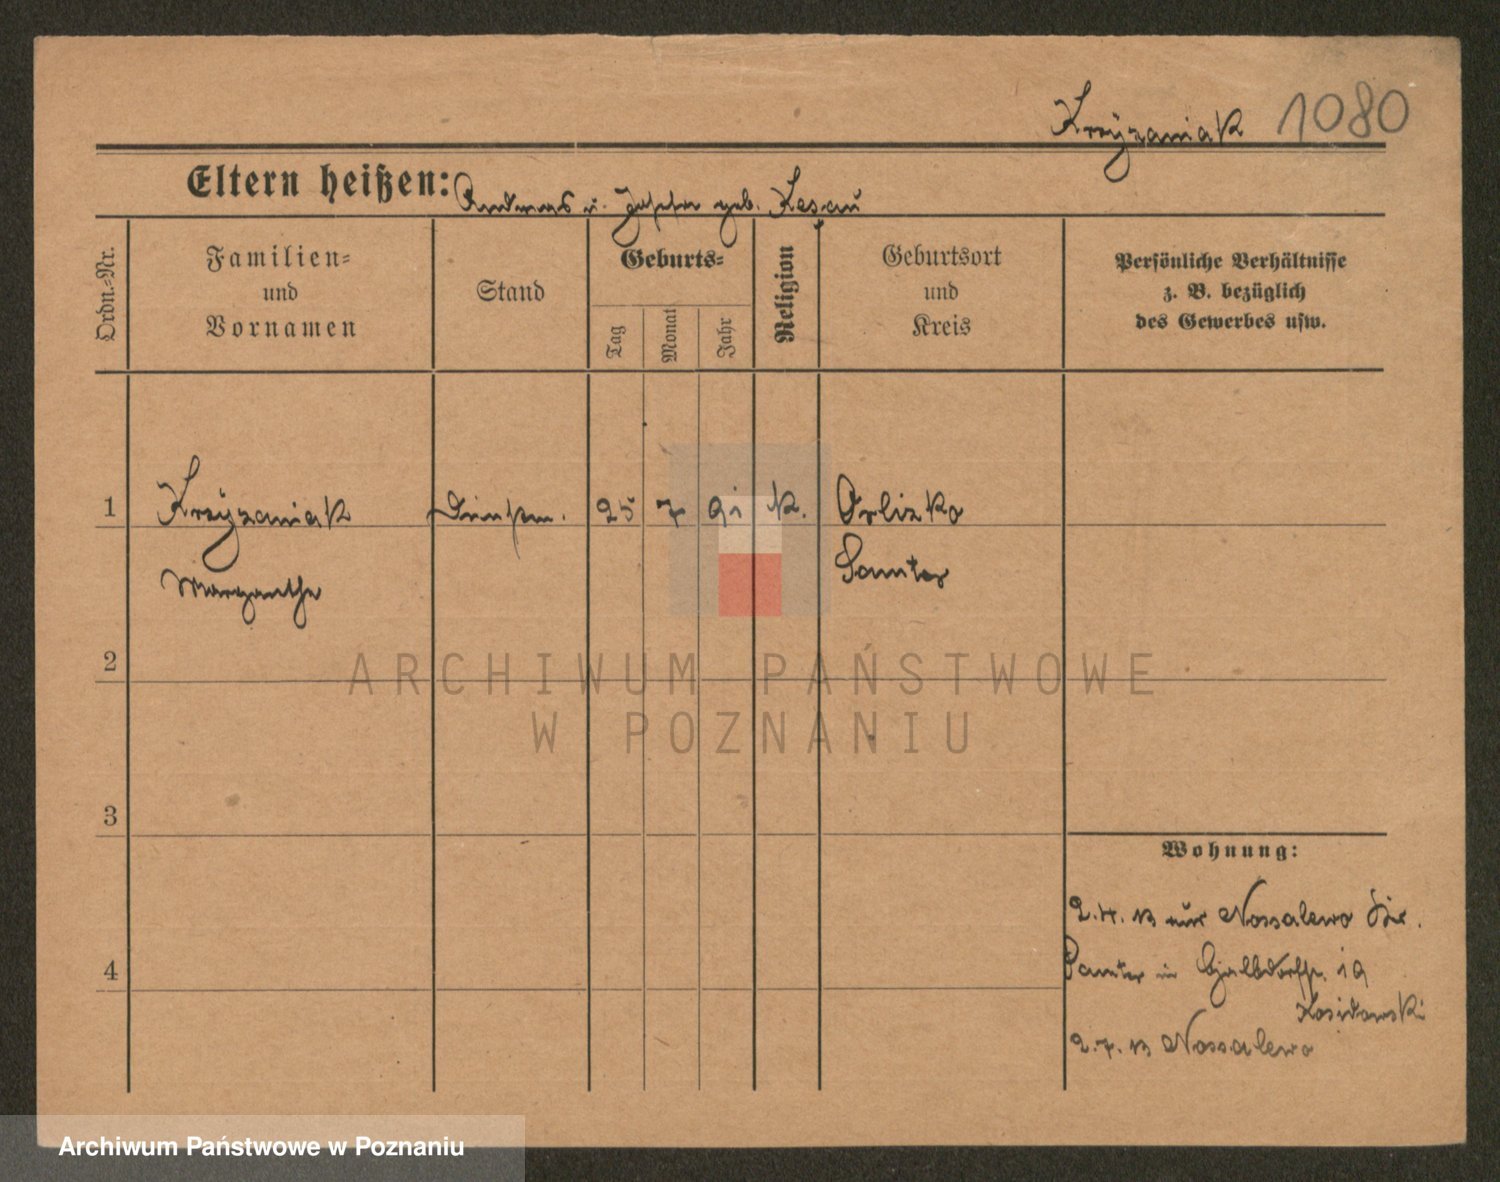 Krzyzaniak 1080
Eltern heißen: Andreas u. Josefa geb.
Ordn.-Nr.
Familien- und Vornamen
Stand
Geburts-
Tag
Monat
Jahr
Religion
Geburtsort und Kreis
Persönliche Verhältnisse
z. B. bezüglich
des Gewerbes usw.
1 Krzyzaniak 25 7 91 k. Orliczko
Margarethe Samter
2
3
4
Wohnung:
2.4.13 aus Nossalewo Kr.
Samter in 19
Kosidowski
2.7.13 Nossalewo
ARCHIWUM PAŃSTWOWE
W POZNANIU
Archiwum Państwowe w Poznaniu